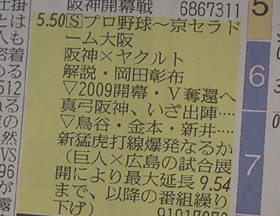 阪神開幕戦
6867311
5.50Ⓢプロ野球〜京セラド
ーム大阪
阪神×ヤクルト
解説・岡田彰布
▽2009開幕・V奪還へ
真弓阪神、いざ出陣‥‥
▽鳥谷・金本・新井‥‥
新猛虎打線爆発なるか
(巨人×広島の試合展
開により最大延長9.54
まで、以降の番組繰り
下げ)
仕掛
とは
姿
着
512
VS
5
6
7